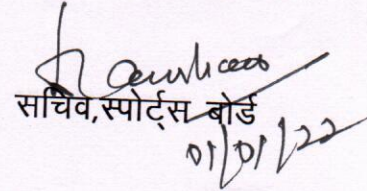 सचिव,स्पोर्ट्स बोर्ड
01/01/22